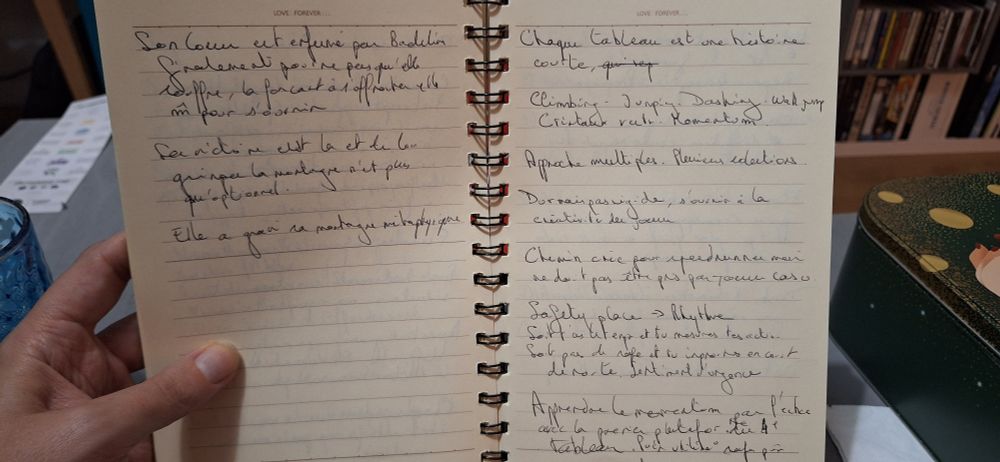 LOVE FOREVER...
Son cœur est enfumé par Badelin
Finalement pour ne pas qu'elle
souffre, la forçant à s'affronter elle
m̂ pour s'ouvrir
Sa victoire est là et de là
grimper la montagne n'est plus
qu'optionnel.
Elle a gravi sa montagne métaphysique
LOVE FOREVER...
Chaque tableau est une histoire
courte,
Climbing. Jumping. Dashing. Wall jump
Cristaux verts. Momentum.
Approche multiples. Plusieurs solutions.
s'ouvrir à la
créativité du joueur
Chemin créé pour speedrunner mais
ne doit pas être pris par joueur casu
Safety place → Rhythme
Soit t'as le temps et tu mesures tes actions
Soit pas de safe et tu improvises en cas
de mort. Sentiment d'urgence
Apprendre le momentum par l'échec
avec la première plateforme du 1er
tableau. Puis utiliser safe